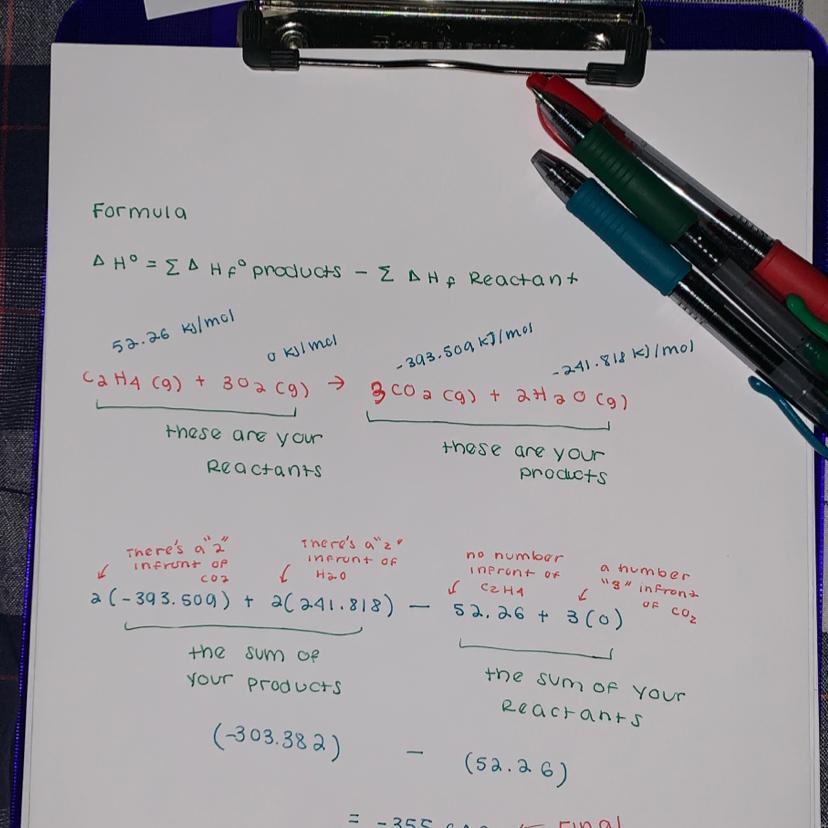 Formula
Δ H° = Σ Δ Hf° products − Σ ΔHf Reactant
52.26 KJ/mol
0 KJ/mol
-393.509 KJ/mol
-241.818 KJ/mol
C2H4 (g) + 3O2 (g) → 3CO2 (g) + 2H2O (g)
these are your
Reactants
these are your
products
There's a "2"
infront of
CO2
There's a "2"
infront of
H2O
no number
infront of
C2H4
a number
"3" infront
of CO2
2(-393.509) + 2(241.818) − 52.26 + 3(0)
the sum of
your products
the sum of your
Reactants
(-303.382) − (52.26)
= -355 Final